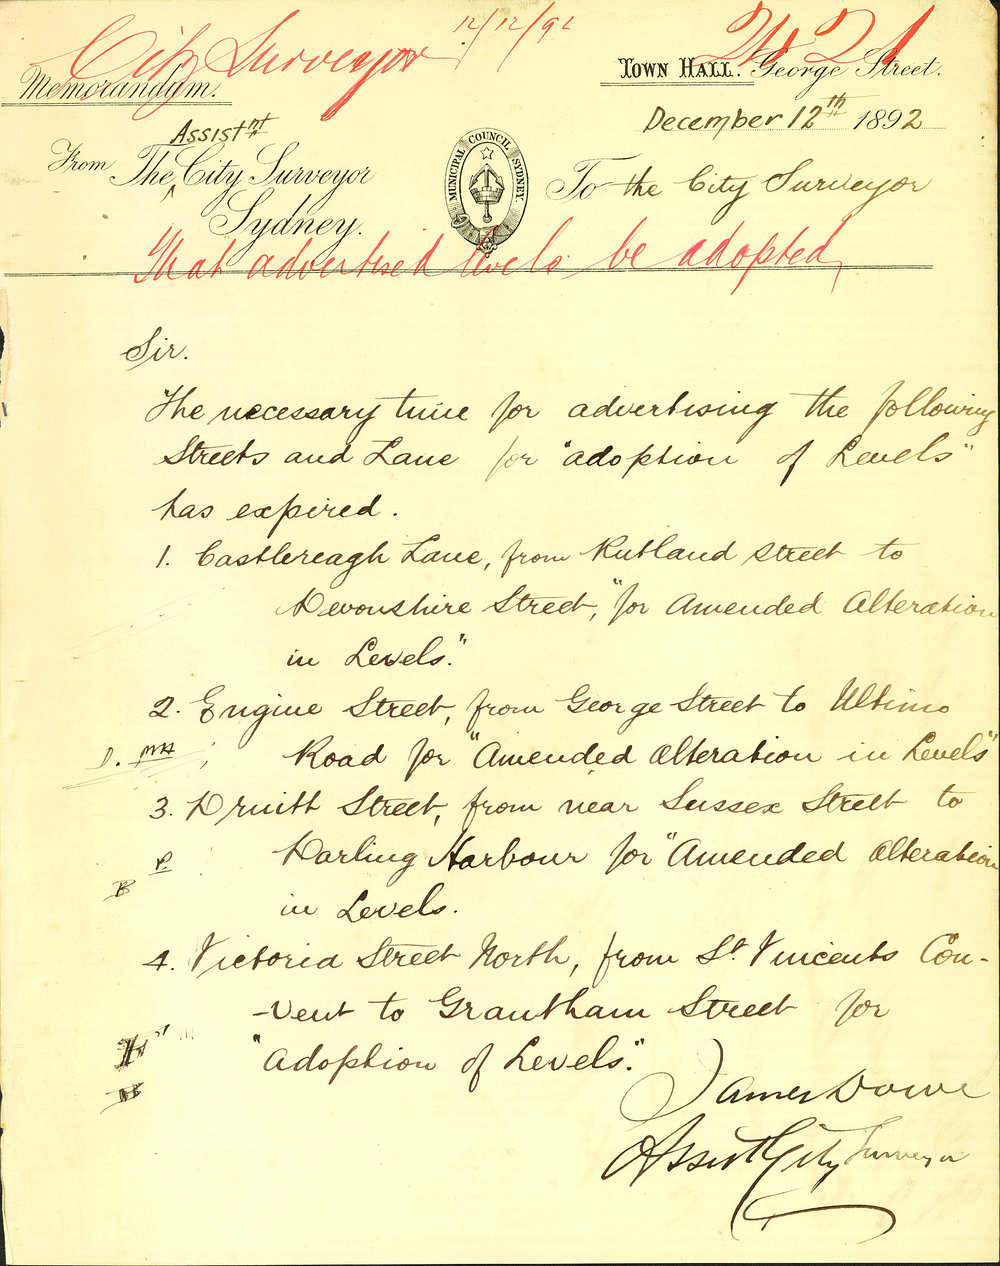 City Surveyor 12/12/92 2421
Memorandum. TOWN HALL. George Street.
December 12th 1892
Assistnt
From The City Surveyor To the City Surveyor
Sydney.
MUNICIPAL COUNCIL SYDNEY.
That advertised levels be adopted
Sir.
The necessary time for advertising the following
Streets and Lane for "adoption of Levels"
has expired.
1. Castlereagh Lane, from Rutland street to
Devonshire Street, "for Amended Alteration
in Levels."
2. Engine Street, from George Street to Ultimo
Road for "Amended Alteration in Levels"
3. Druitt Street, from near Sussex Street to
Darling Harbour for "Amended Alteration
in Levels.
4. Victoria Street North, from St. Vincents Con-
-vent to Grantham Street for
"Adoption of Levels".
James Dowe
Assist City Surveyor